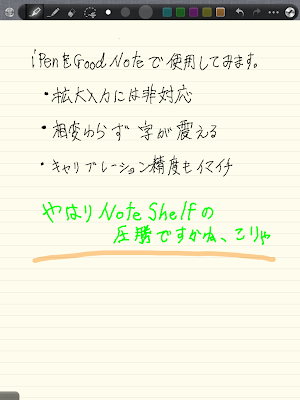 iPenをGood Noteで使用してみます。
・拡大入力には非対応
・相変わらず字が震える
・キャリブレーション精度もイマイチ
やはりNote Shelfの
圧勝ですかね、こりゃ